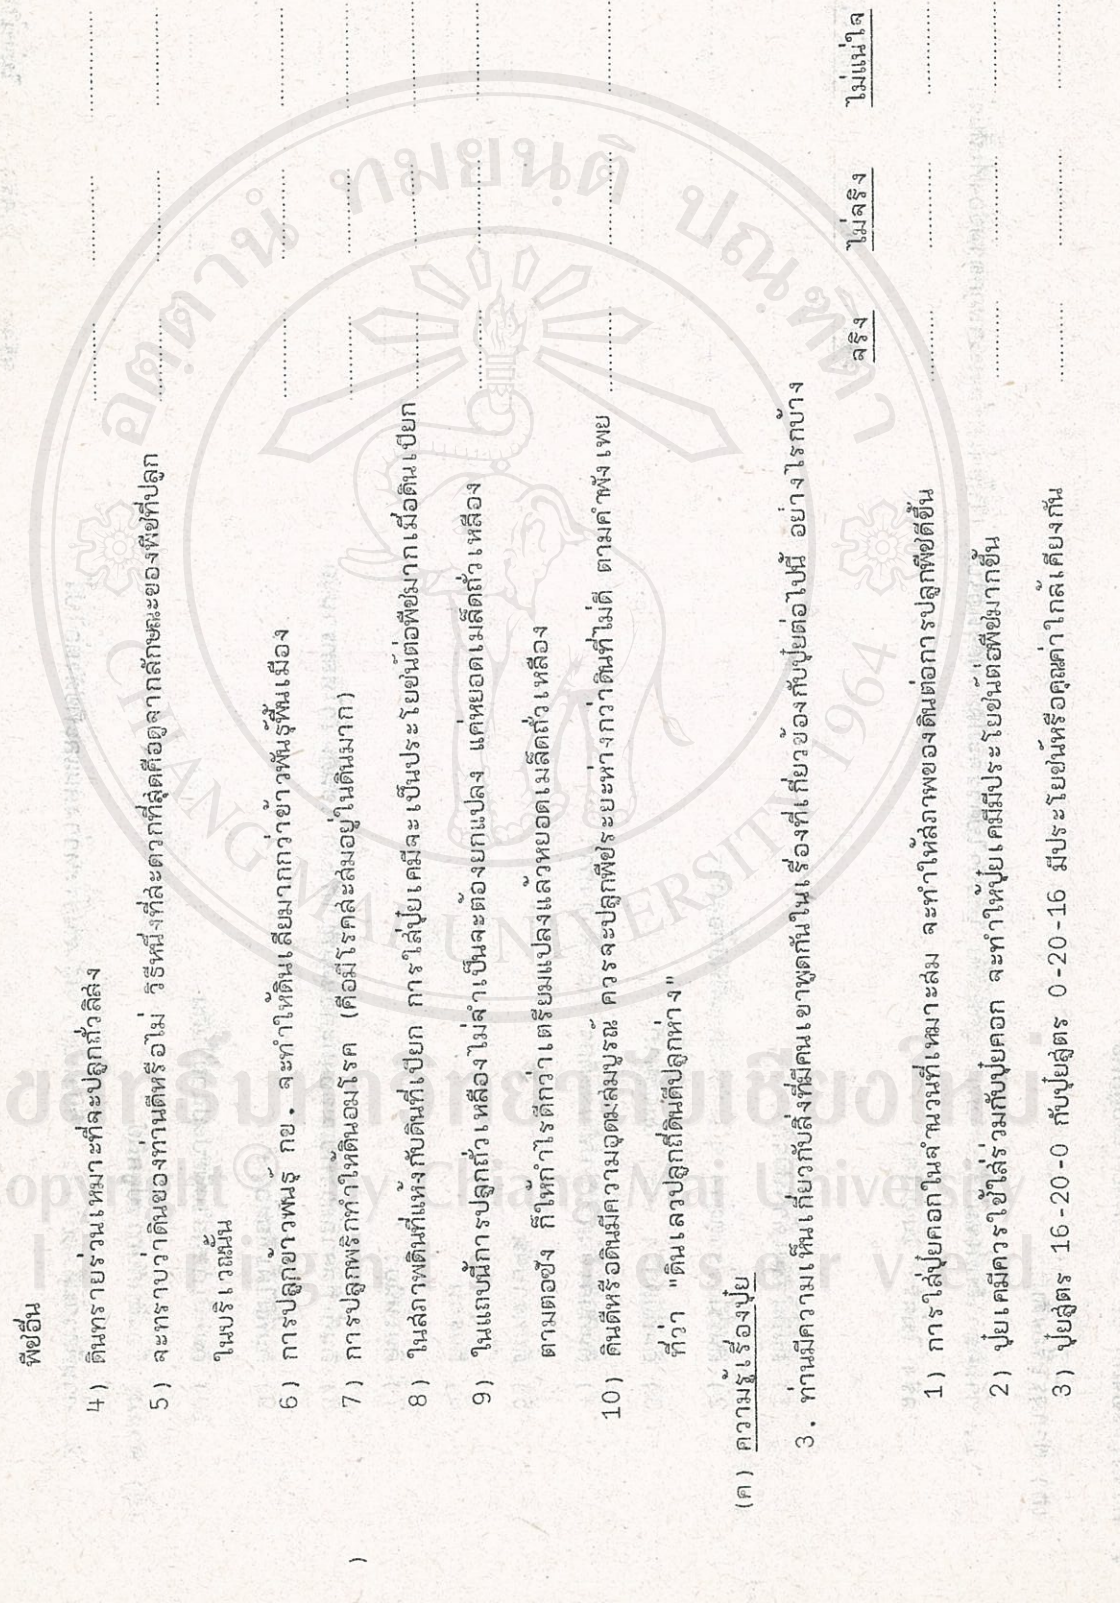 พืชอื่น
4) ดินทรายร่วนเหมาะที่จะปลูกถั่วลิสง .......... .......... ..........
5) จะทราบว่าดินของท่านดีหรือไม่ วิธีหนึ่งที่สะดวกที่สุดคือดูจากลักษณะของพืชที่ปลูก .......... .......... ..........
ในบริเวณนั้น
6) การปลูกข้าวพันธุ์ กข. จะทำให้ดินเสียมากกว่าข้าวพันธุ์พื้นเมือง .......... .......... ..........
7) การปลูกพริกทำให้ดินอมโรค (คือมีโรคสะสมอยู่ในดินมาก) .......... .......... ..........
8) ในสภาพดินที่แห้งกับดินที่เปียก การใส่ปุ๋ยเคมีจะเป็นประโยชน์ต่อพืชมากเมื่อดินเปียก .......... .......... ..........
9) ในแถบนี้การปลูกถั่วเหลืองไม่จำเป็นจะต้องยกแปลง แค่หยอดเมล็ดถั่วเหลือง .......... .......... ..........
ตามตอซัง ก็ให้กำไรดีกว่าเตรียมแปลงแล้วหยอดเมล็ดถั่วเหลือง
10) ดินดีหรือดินมีความอุดมสมบูรณ์ ควรจะปลูกพืชระยะห่างกว่าดินที่ไม่ดี ตามคำพังเพย .......... .......... ..........
ที่ว่า "ดินเลวปลูกถี่ดินดีปลูกห่าง"
(ค) ความรู้เรื่องปุ๋ย
3. ท่านมีความเห็นเกี่ยวกับสิ่งที่มีคนเขาพูดกันในเรื่องที่เกี่ยวข้องกับปุ๋ยต่อไปนี้ อย่างไรกบ้าง
จริง ไม่จริง ไม่แน่ใจ
1) การใส่ปุ๋ยคอกในจำนวนที่เหมาะสม จะทำให้สภาพของดินต่อการปลูกพืชดีขึ้น .......... .......... ..........
2) ปุ๋ยเคมีควรใช้ใส่ร่วมกับปุ๋ยคอก จะทำให้ปุ๋ยเคมีมีประโยชน์ต่อพืชมากขึ้น .......... .......... ..........
3) ปุ๋ยสูตร 16-20-0 กับปุ๋ยสูตร 0-20-16 มีประโยชน์หรือคุณค่าใกล้เคียงกัน .......... .......... ..........
อตฺตานํ ทมยนฺติ ปณฺฑิตา
CHIANG MAI UNIVERSITY 1964
ลิขสิทธิ์มหาวิทยาลัยเชียงใหม่
Copyright© by Chiang Mai University
All rights reserved